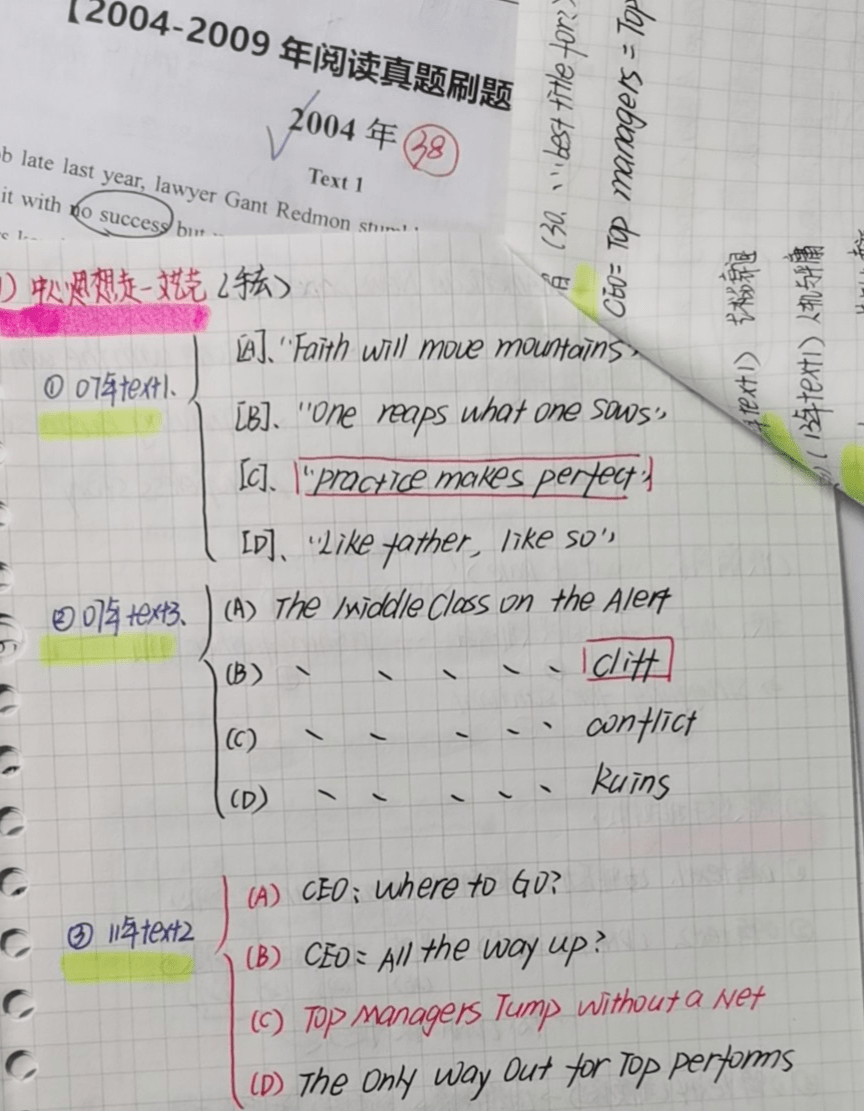 【2004-2009 年阅读真题刷题
2004 年 38
Text 1
b late last year, lawyer Gant Redmon
it with no success but
(30. "best title for?)
CEO= Top managers = Top
(13年text1)
中心思想走一
① 07年text1、
[A]、"Faith will move mountains"
[B]、"One reaps what one sows"
[C]、"practice makes perfect"
[D]、"Like father, like so"
② 07年text3、
(A) The Middle Class on the Alert
(B) 、 、 、 、 、 Cliff
(C) 、 、 、 、 、 conflict
(D) 、 、 、 、 、 Ruins
③ 11年text2
(A) CEO: Where to GO?
(B) CEO= All the way up?
(C) Top Managers Jump Without a Net
(D) The Only Way Out for Top performs